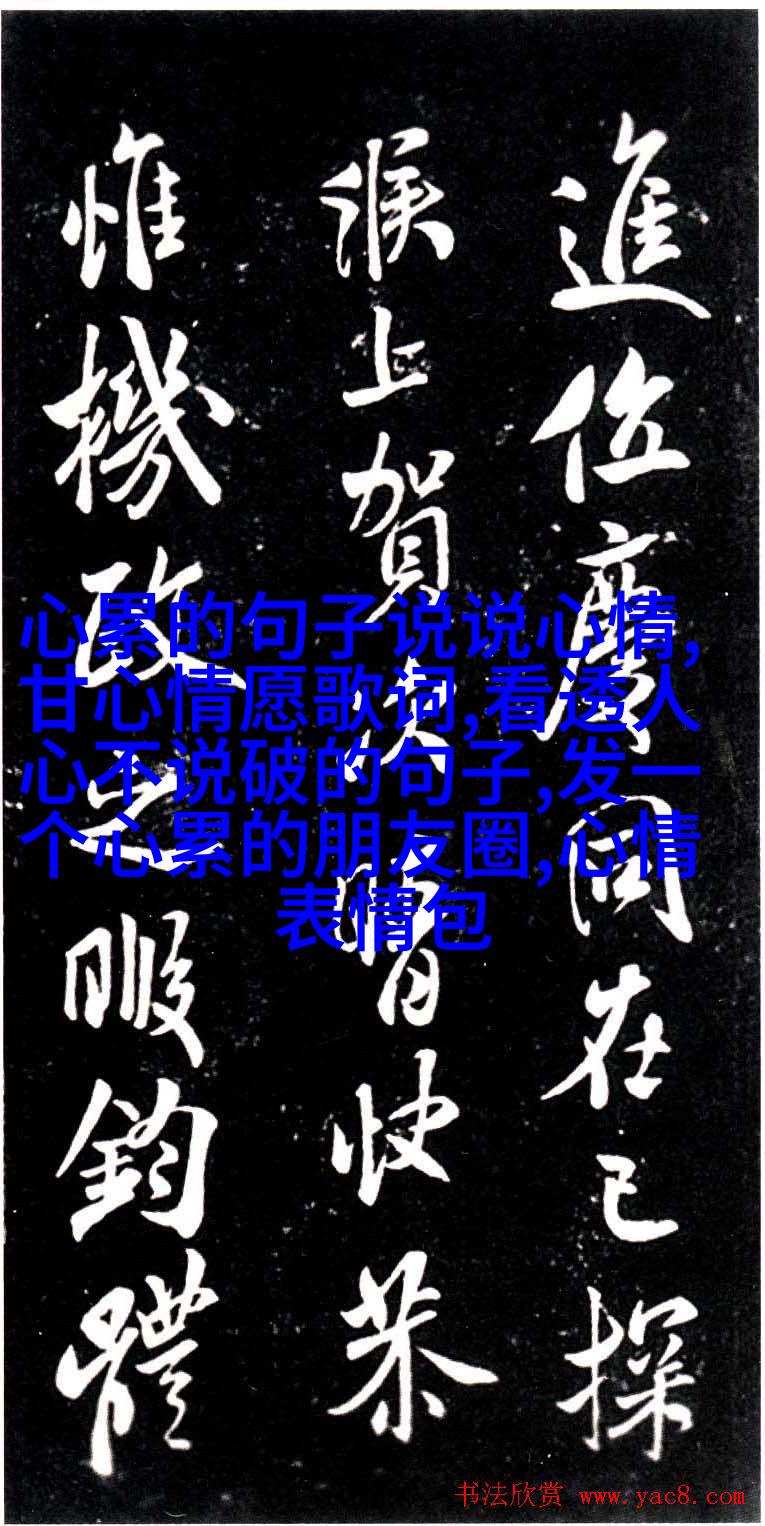 進位廣同在己探
候上賀次暗快恭
惟機政之暇鈞體
心累的句子说说心情,
甘心情愿歌词,看透人
心不说破的句子,发一
个心累的朋友圈,心情
表情包
书法欣赏 www.yac8.com